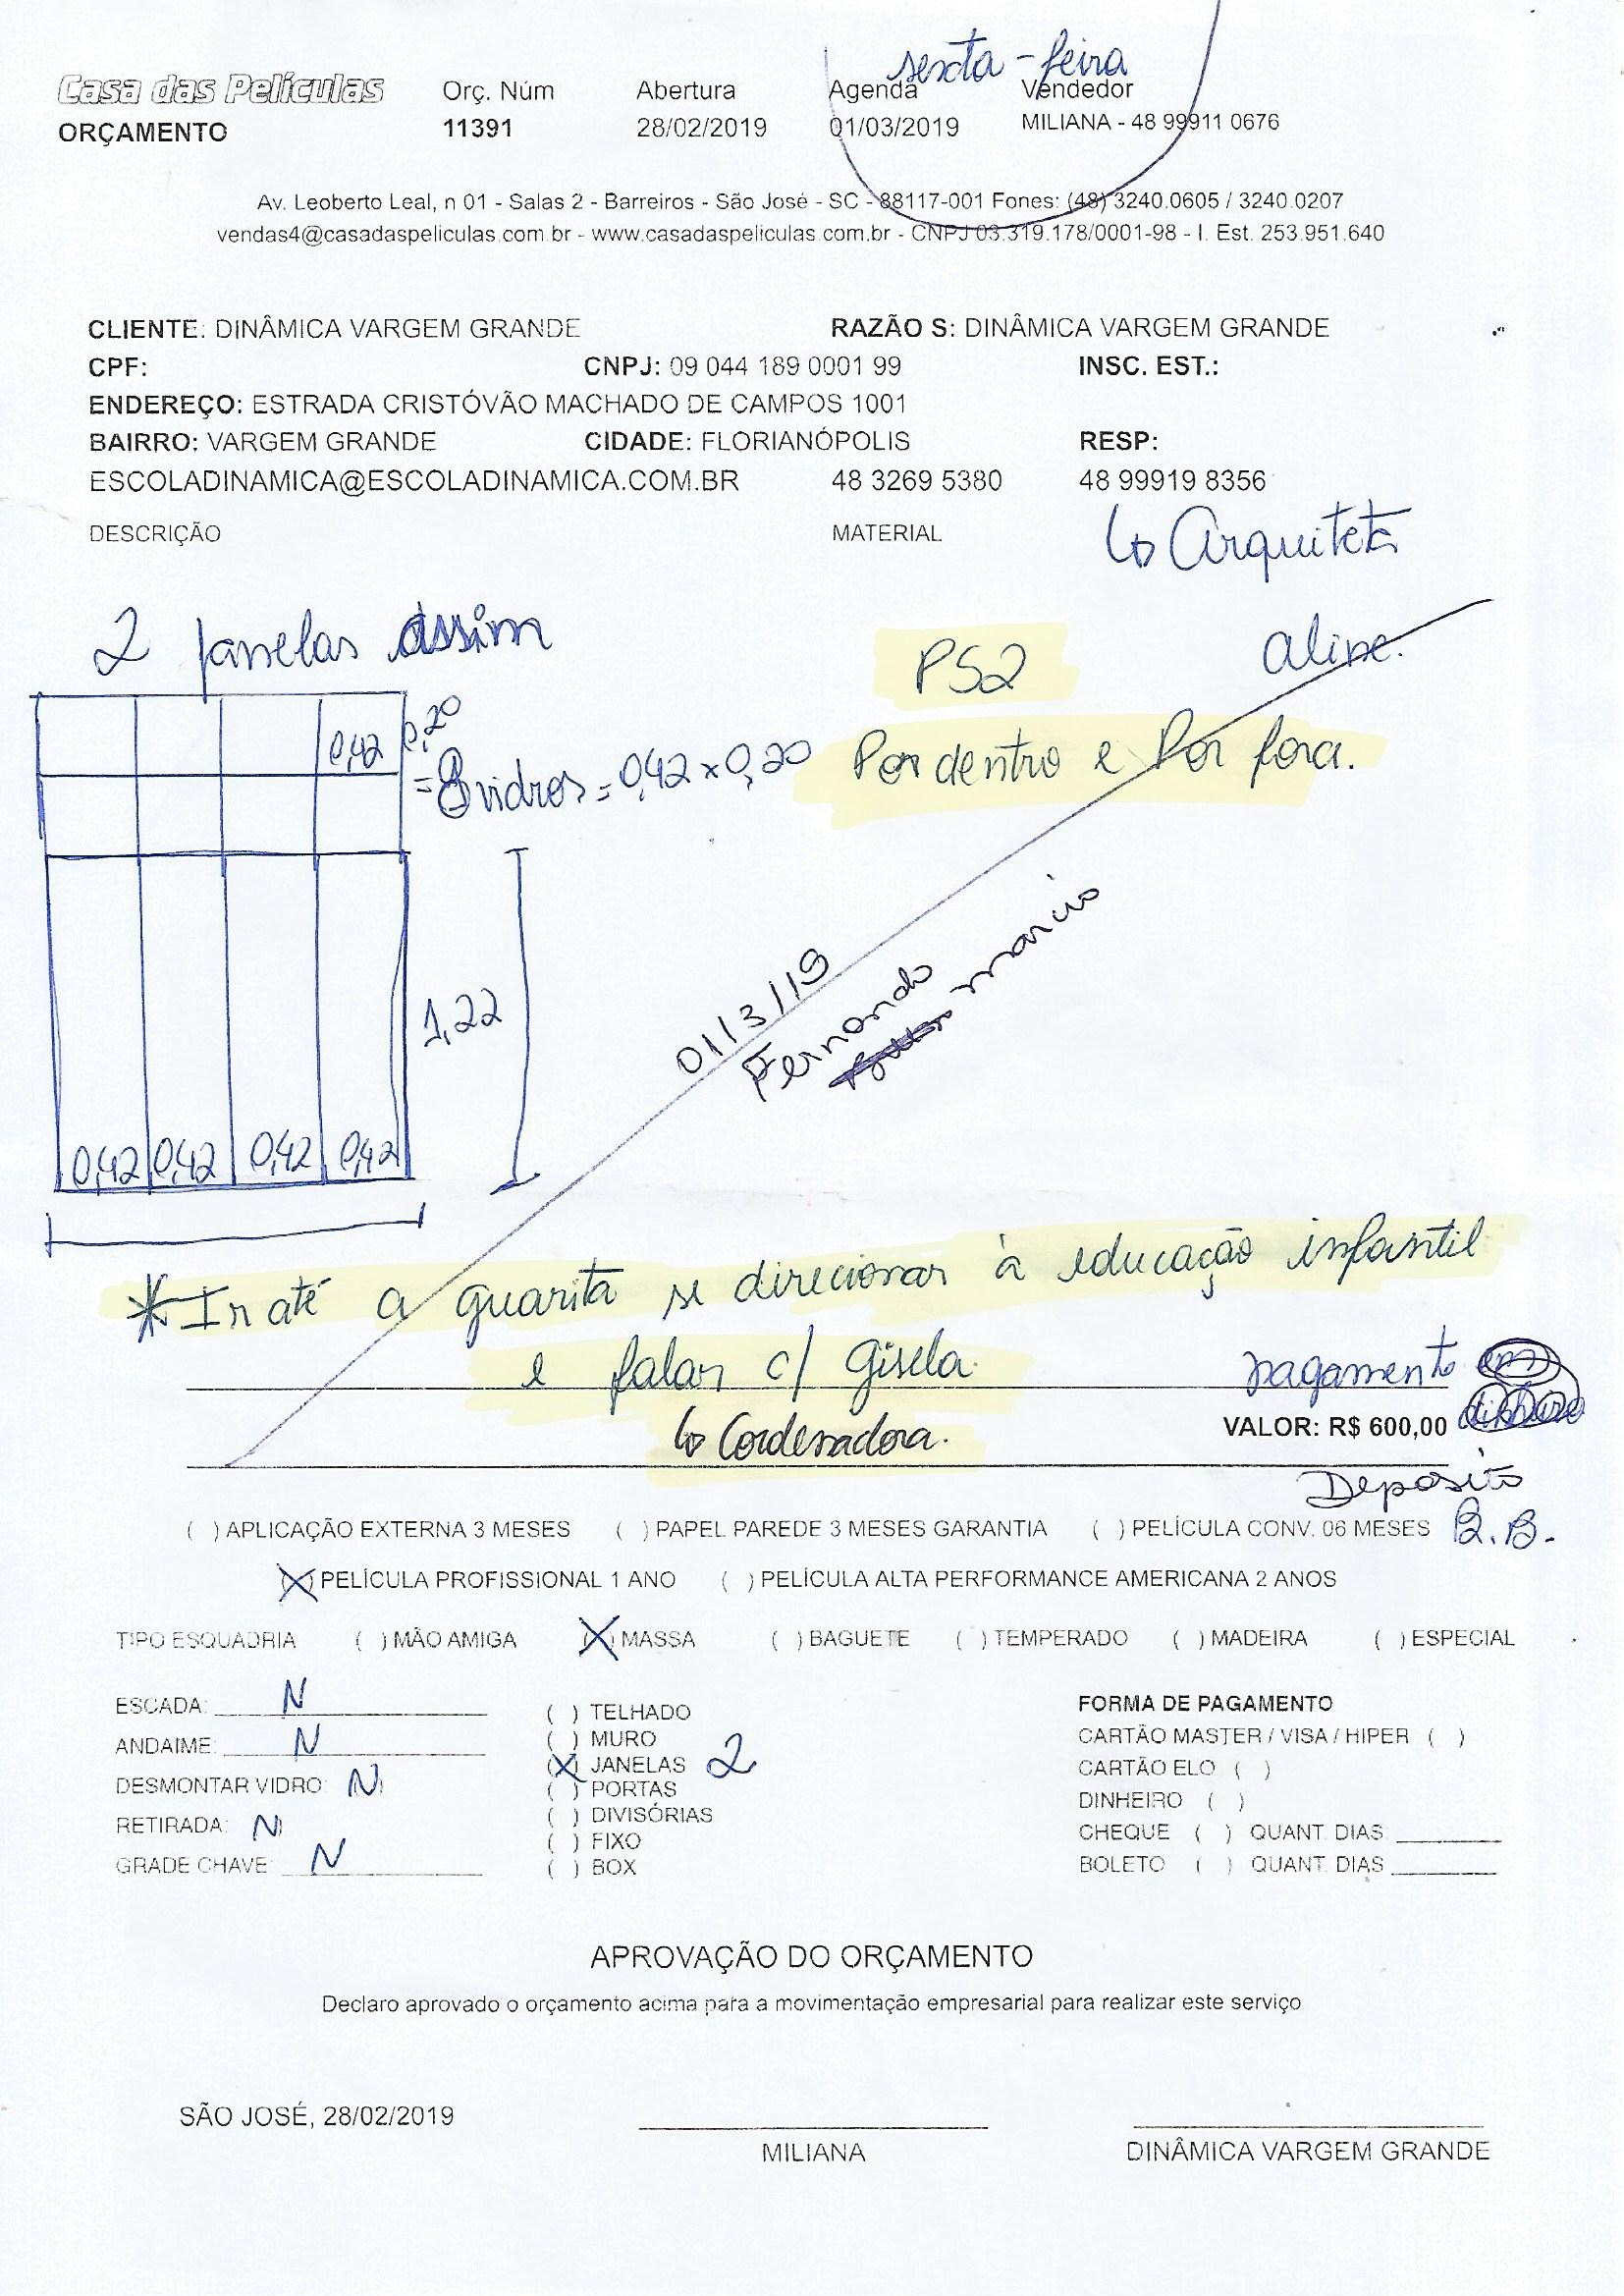 sexta-feira
Casa das Películas Orç. Núm Abertura Agenda Vendedor
ORÇAMENTO 11391 28/02/2019 01/03/2019 MILIANA - 48 99911 0676
Av. Leoberto Leal, n 01 - Salas 2 - Barreiros - São José - SC - 88117-001 Fones: (48) 3240.0605 / 3240.0207
vendas4@casadaspeliculas.com.br - www.casadaspeliculas.com.br - CNPJ 03.319.178/0001-98 - I. Est. 253.951.640
CLIENTE: DINÂMICA VARGEM GRANDE RAZÃO S: DINÂMICA VARGEM GRANDE
CPF: CNPJ: 09 044 189 0001 99 INSC. EST.:
ENDEREÇO: ESTRADA CRISTÓVÃO MACHADO DE CAMPOS 1001
BAIRRO: VARGEM GRANDE CIDADE: FLORIANÓPOLIS RESP:
ESCOLADINAMICA@ESCOLADINAMICA.COM.BR 48 3269 5380 48 99919 8356
DESCRIÇÃO MATERIAL Arquiteta
2 janelas assim PS2 aline.
0,42 0,20
= 8 vidros = 0,42 x 0,20 Por dentro e Por fora.
1,22
01/3/19
Fernando marcio
0,42 0,42 0,42 0,42
* Ir até a guarita se direcionar à educação infantil
e falar c/ Gisela. pagamento em
Cordenadora. VALOR: R$ 600,00 dinheiro
Deposito
( ) APLICAÇÃO EXTERNA 3 MESES ( ) PAPEL PAREDE 3 MESES GARANTIA ( ) PELÍCULA CONV. 06 MESES B.B.
(X) PELÍCULA PROFISSIONAL 1 ANO ( ) PELÍCULA ALTA PERFORMANCE AMERICANA 2 ANOS
TIPO ESQUADRIA ( ) MÃO AMIGA (X) MASSA ( ) BAGUETE ( ) TEMPERADO ( ) MADEIRA ( ) ESPECIAL
ESCADA: N
ANDAIME: N
DESMONTAR VIDRO: N
RETIRADA: N
GRADE CHAVE: N
( ) TELHADO
( ) MURO
(X) JANELAS 2
( ) PORTAS
( ) DIVISÓRIAS
( ) FIXO
( ) BOX
FORMA DE PAGAMENTO
CARTÃO MASTER / VISA / HIPER ( )
CARTÃO ELO ( )
DINHEIRO ( )
CHEQUE ( ) QUANT. DIAS
BOLETO ( ) QUANT. DIAS
APROVAÇÃO DO ORÇAMENTO
Declaro aprovado o orçamento acima para a movimentação empresarial para realizar este serviço
SÃO JOSÉ, 28/02/2019
MILIANA DINÂMICA VARGEM GRANDE